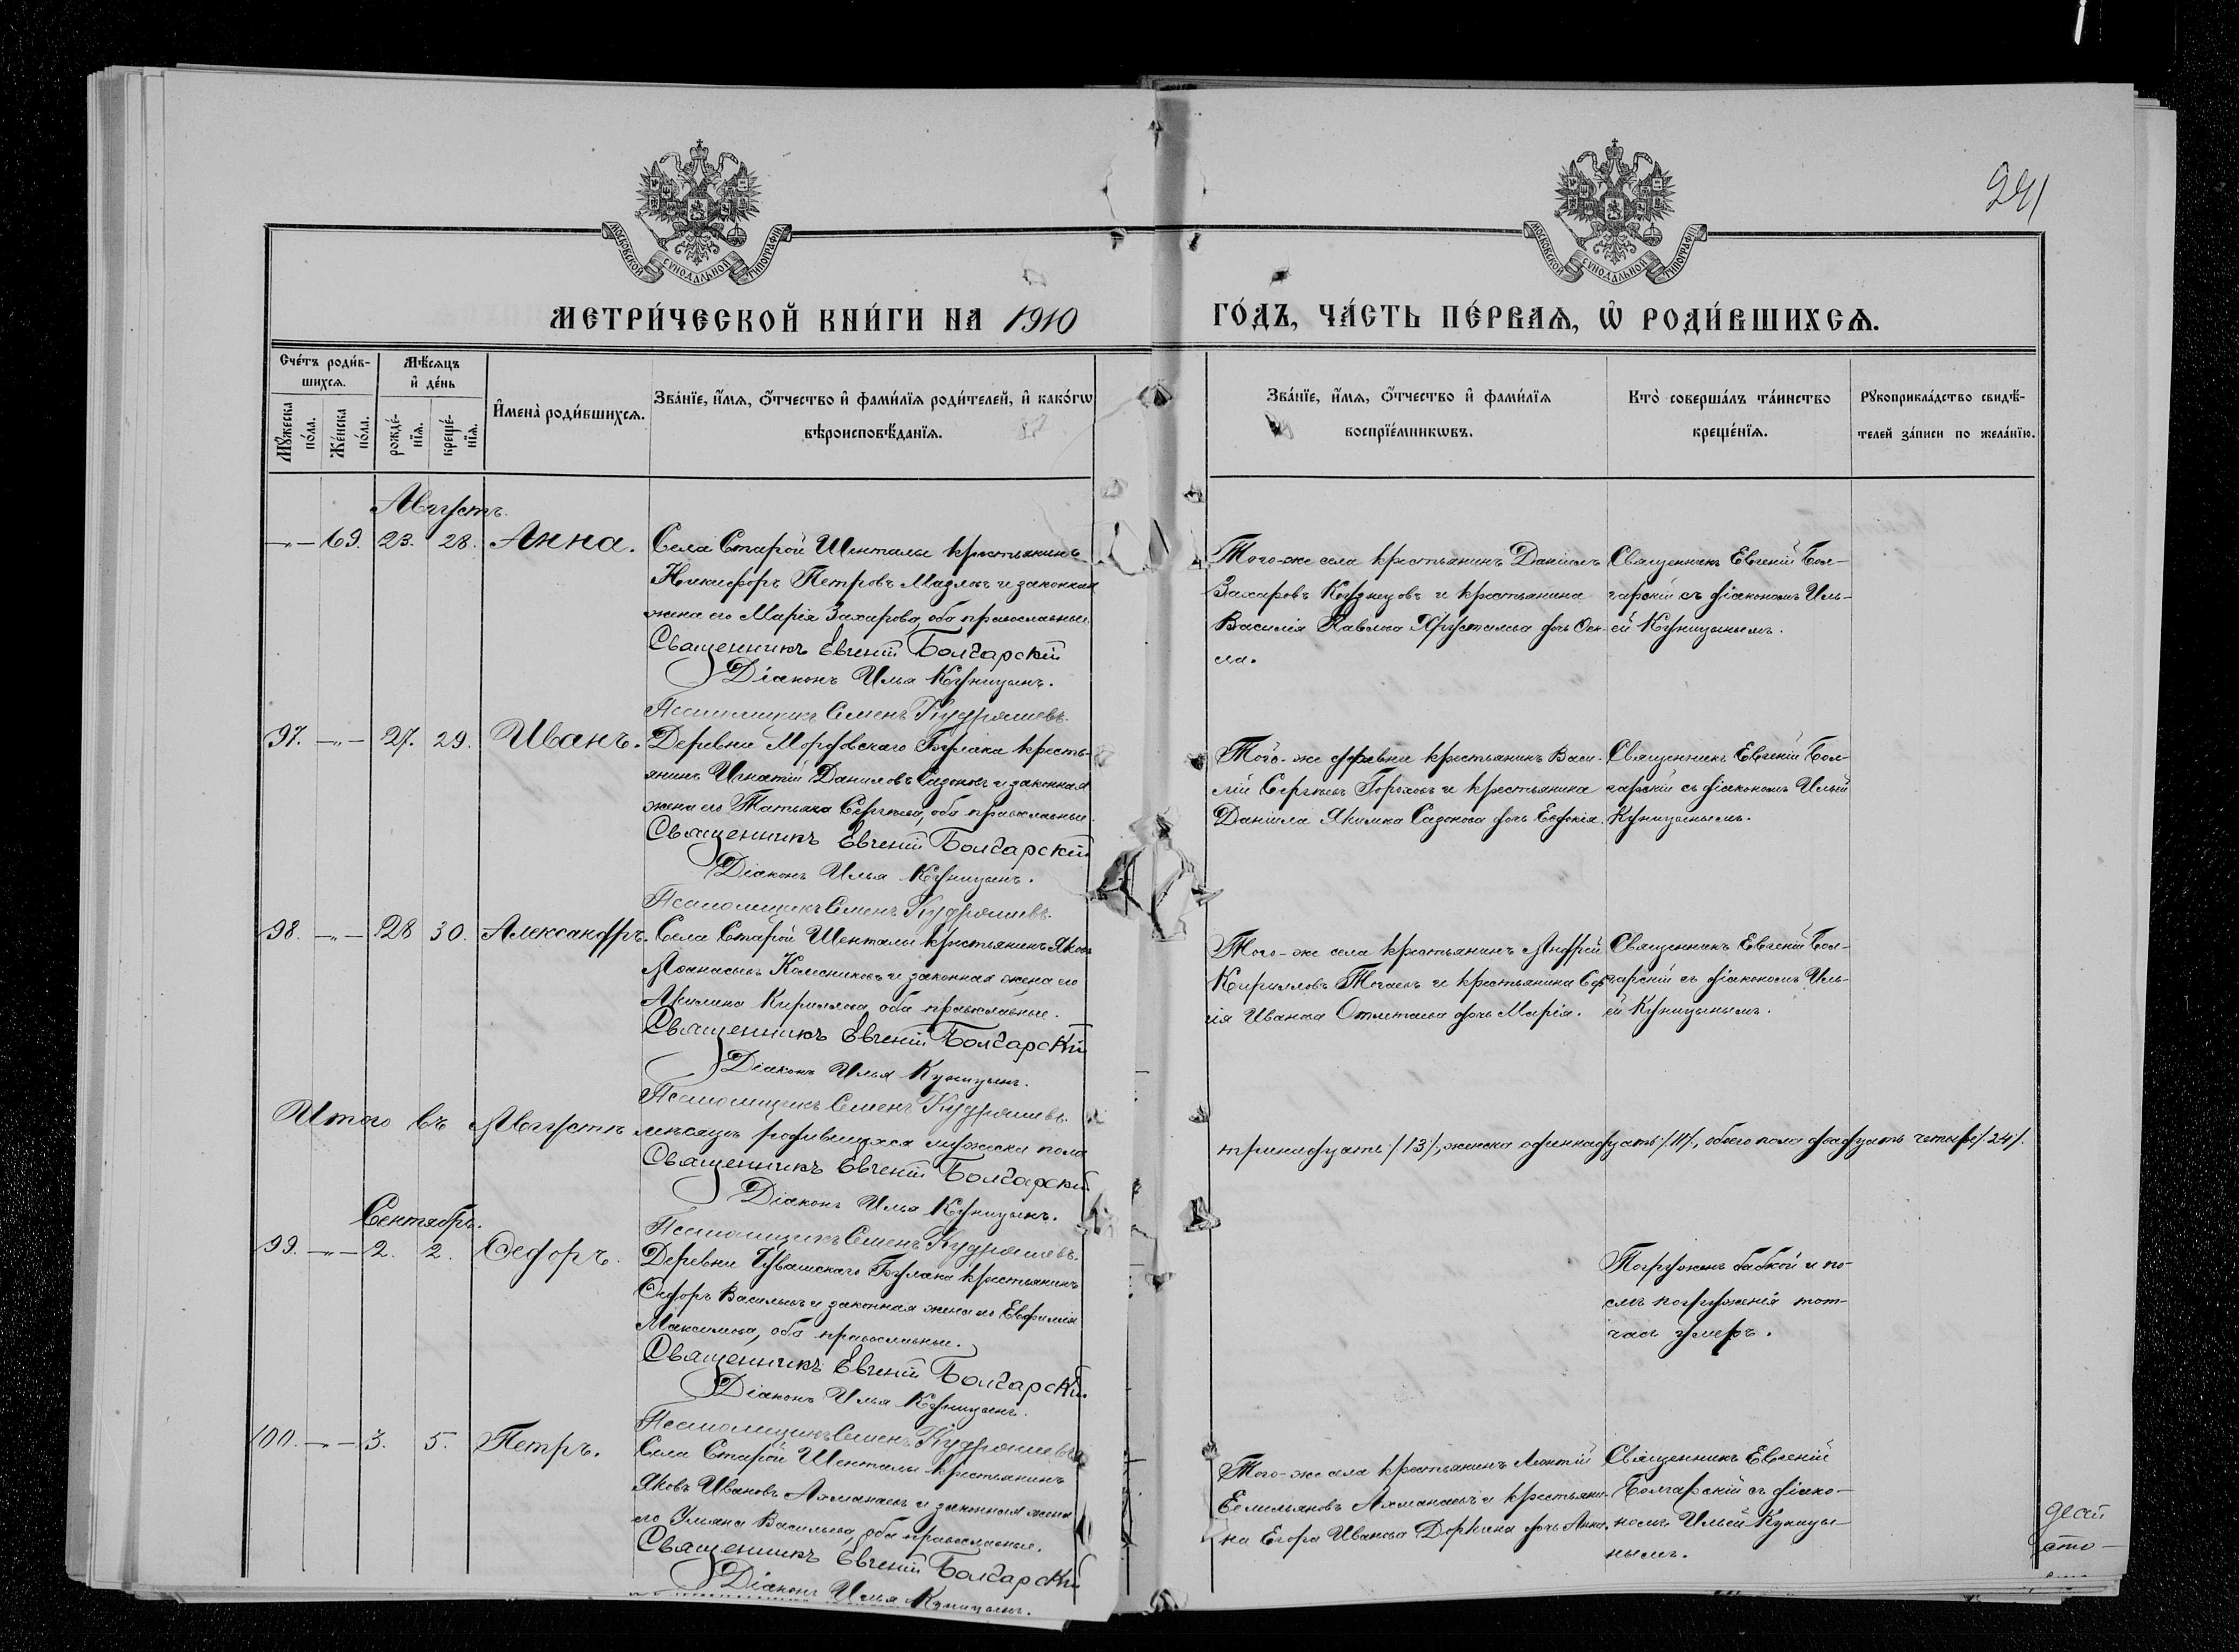 241
МОСКОВСКОЙ СУНОДАЛЬНОЙ ТИПОГРАФІИ
МОСКОВСКОЙ СУНОДАЛЬНОЙ ТИПОГРАФІИ
МЕТРИ́ЧЕСКОЙ КНИ́ГИ НА 1910
ГО́ДЪ, ЧА́СТЬ ПЕ́РВАѦ, Ѡ҆ РОДИ́ВШИХСѦ.
Сче́тъ роди́в-
шихсѧ.
Мꙋ́жеска по́ла.
Же́нска по́ла.
Мѣ́сѧцъ
и҆ де́нь
рожде́-нїѧ.
креще́-нїѧ.
И҆мена̀ роди́вшихсѧ.
Зва́нїе, и҆́мѧ, ѻ҆́тчество и҆ фами́лїѧ роди́телей, и҆ како́гѡ
вѣроисповѣ́данїѧ.
Зва́нїе, и҆́мѧ, ѻ҆́тчество и҆ фами́лїѧ
воспрїе́мникѡвъ.
Кто̀ соверша́лъ та́инство
креще́нїѧ.
Рꙋкоприкла́дство свидѣ́-
телей за́писи по жела́нїю.
Августъ.
-„- 69. 23. 28. Анна.
Села Старой Шенталы крестьянинъ
Никифоръ Петровъ и законная
жена его Марія Захарова, оба православные.
Священникъ Евгеній Болгарскій
Діаконъ Илья Куницынъ.
Псаломщикъ Семенъ Кудряшевъ.
Того-же села крестьянинъ Даніилъ
Захаровъ Кузнецовъ и крестьянина
Василія Павлова дочь
Священникъ Евгеній Бол-
гарскій съ діакономъ Иль-
ей Куницынымъ.
97. -„- 27. 29. Иванъ.
Деревни Мордовскаго Буглака кресть-
янинъ Игнатій Даниловъ Садоковъ и законная
жена его Татьяна Сергѣева, оба православные.
Священникъ Евгеній Болгарскій
Діаконъ Илья Куницынъ.
Псаломщикъ Семенъ Кудряшевъ.
Той-же деревни крестьянинъ Васи-
лій Сергѣевъ и крестьянина
Даніила Садокова дочь Евдокія.
Священникъ Евгеній Бол-
гарскій съ діакономъ Ильей
Куницынымъ.
98. -„- 28 30. Александръ.
Села Старой Шенталы крестьянинъ Яковъ
Аѳанасьевъ Колесниковъ и законная жена его
Акилина Кириллова, оба православные.
Священникъ Евгеній Болгарскій
Діаконъ Илья Куницынъ.
Псаломщикъ Семенъ Кудряшевъ.
Того-же села крестьянинъ Андрей
Кирилловъ и крестьянина Сер-
гія Иванова дочь Марія.
Священникъ Евгеній Бол-
гарскій съ діакономъ Иль-
ей Куницынымъ.
Итого въ Августѣ мѣсяцѣ родившихся мужеска пола
тринадцать /13/, женска одиннадцать /11/, обоего пола двадцать четыре /24/.
Священникъ Евгеній Болгарскій
Діаконъ Илья Куницынъ.
Псаломщикъ Семенъ Кудряшевъ.
Сентябрь.
99. -„- 2. 2. Ѳедоръ.
Деревни Чувашскаго Буглака крестьянинъ
Ѳедоръ Васильевъ и законная жена его
Максимова, оба православные.
Священникъ Евгеній Болгарскій.
Діаконъ Илья Куницынъ.
Псаломщикъ Семенъ Кудряшевъ
Погруженъ бабкой и по-
слѣ погруженія тот-
часъ умеръ.
100. -„- 3. 5. Петръ.
Села Старой Шенталы крестьянинъ
Яковъ Ивановъ и законная жена
его Ульяна Васильева, оба православные.
Священникъ Евгеній Болгарскій
Діаконъ Илья Куницынъ.
Того-же села крестьянинъ Леонтій
Емельяновъ и крестьяни-
на Егора Иванова дочь Анна.
Священникъ Евгеній
Болгарскій съ діако-
номъ Ильей Куницы-
нымъ.